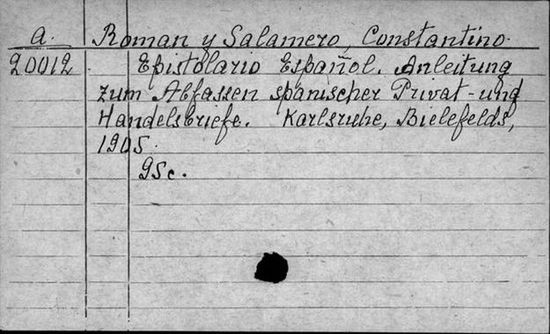 a. Roman y Salamero, Constantino.
20012 Epistolario Español. Anleitung
zum Abfassen spanischer Privat- und
Handelsbriefe. Karlsruhe, Bielefelds,
1905.
95c.